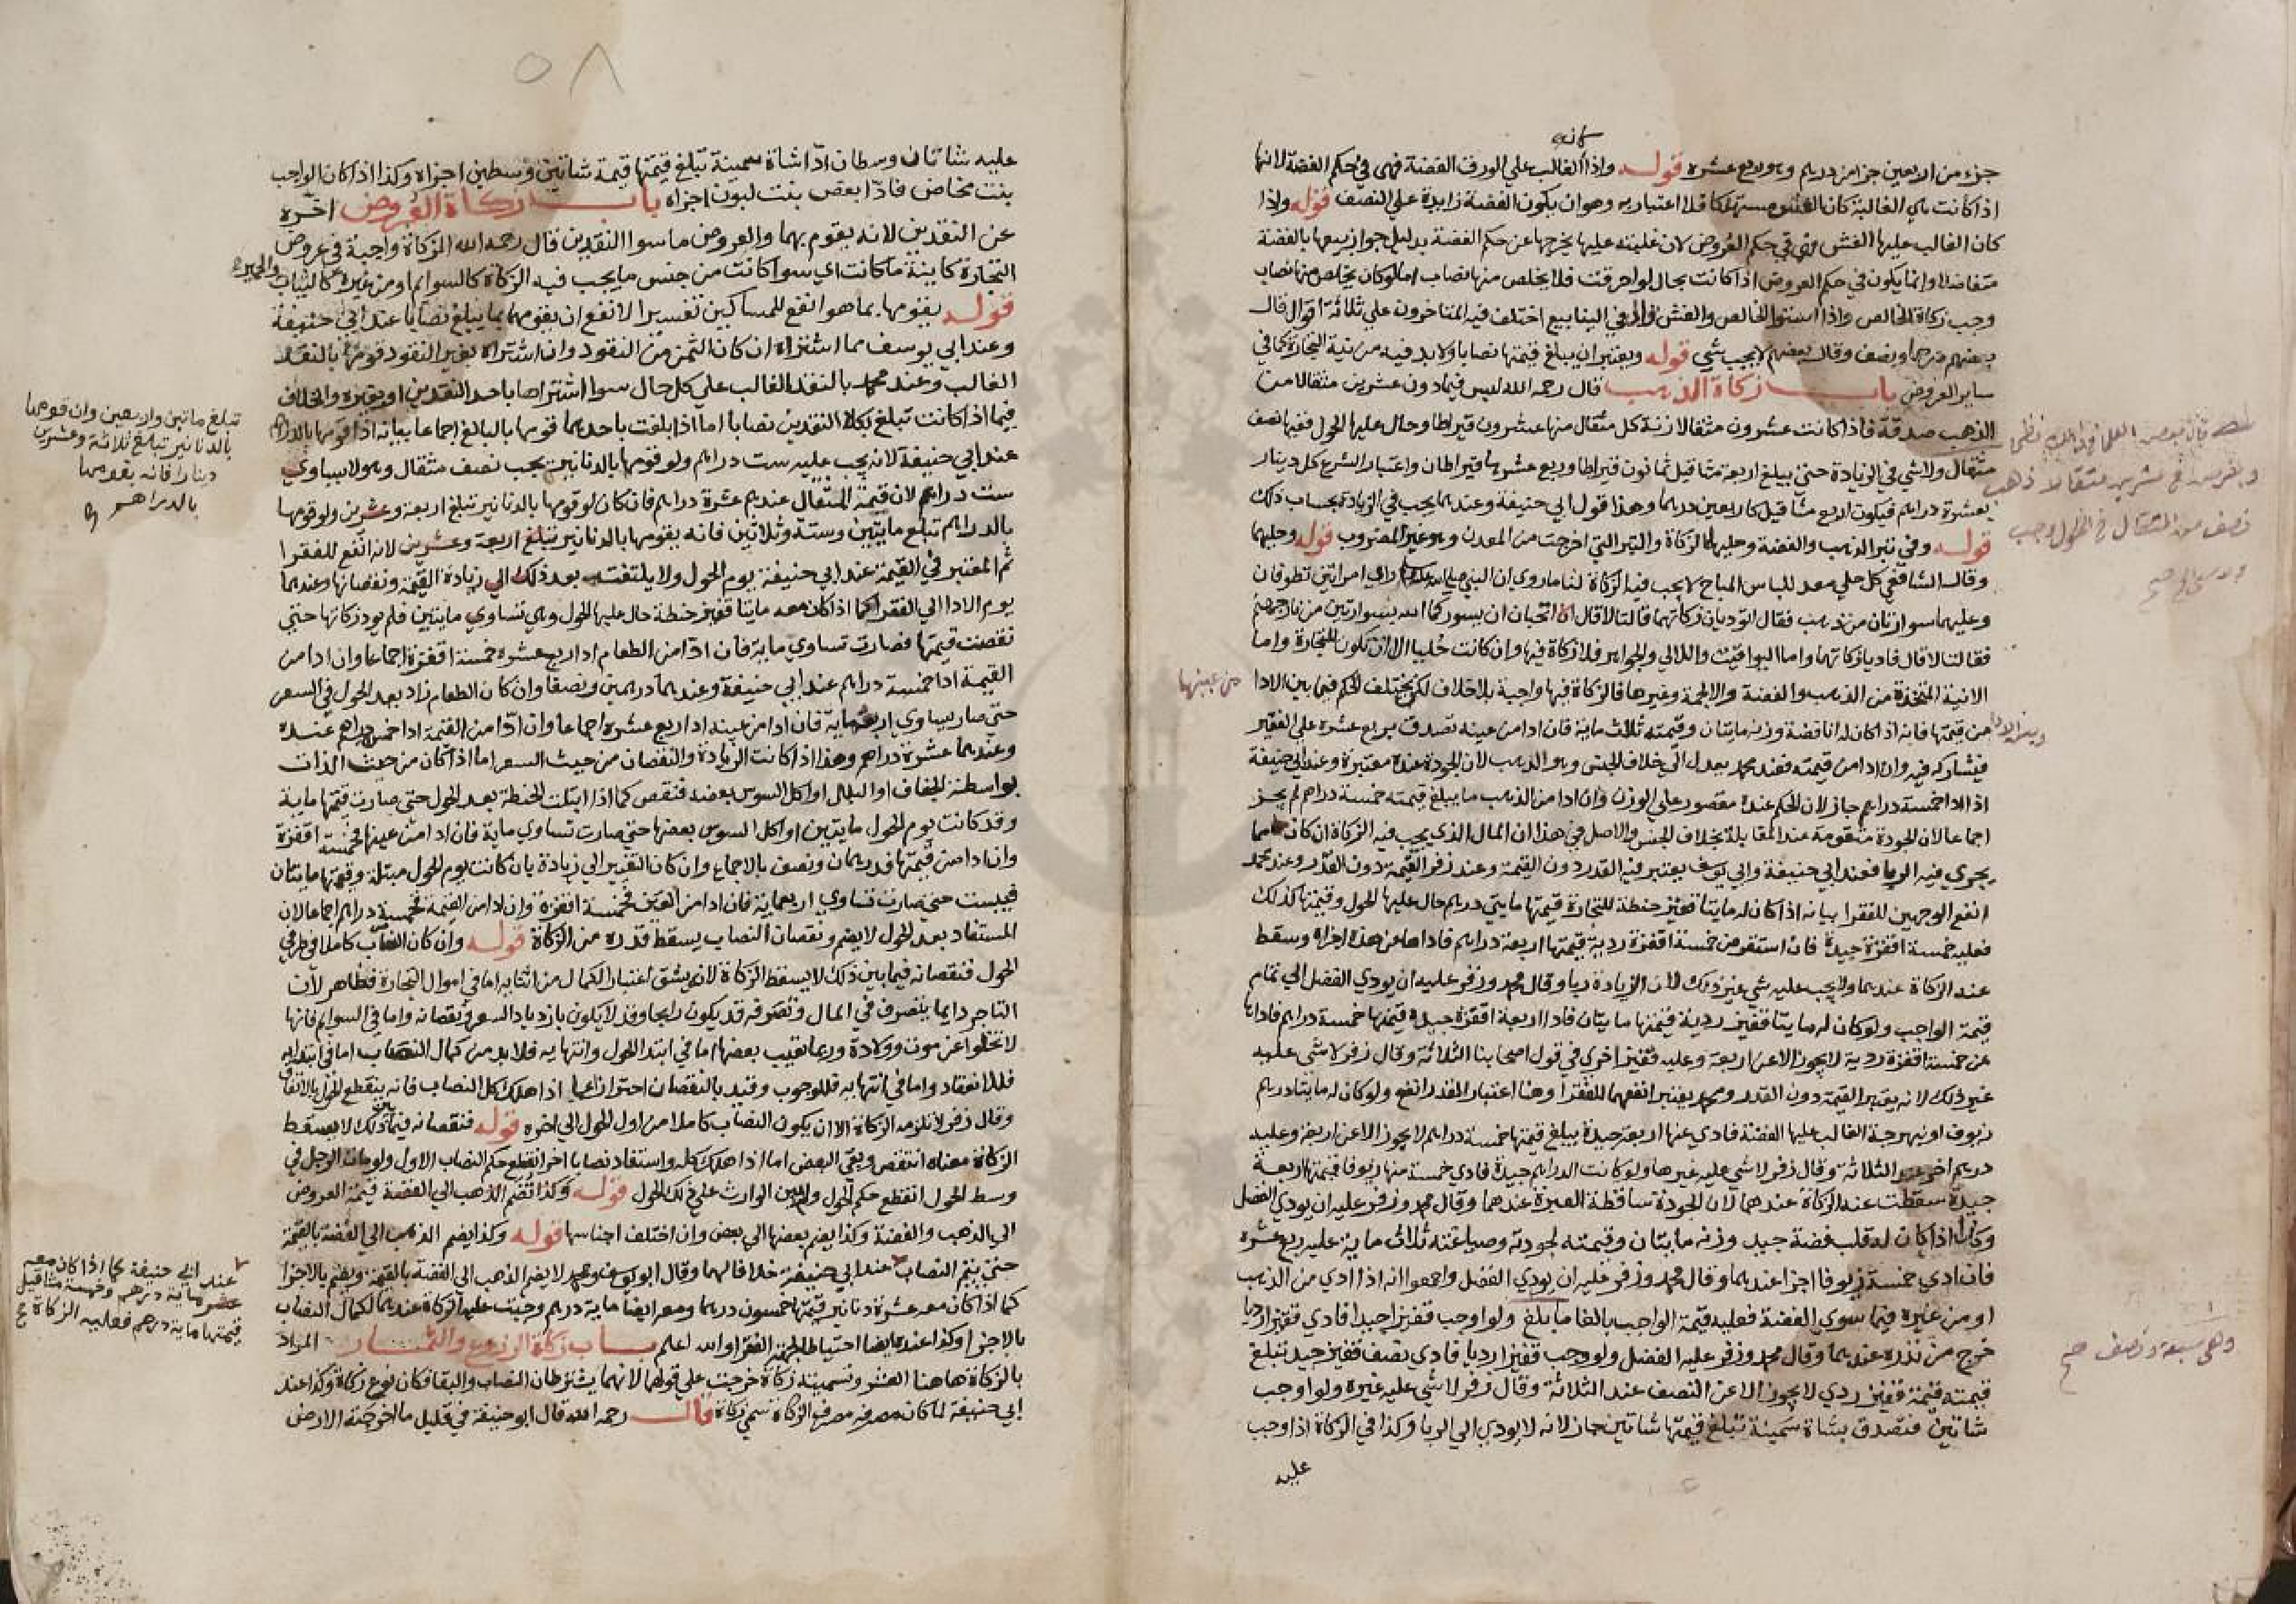 جزء من الاربعين جزا من درهم وهو ربع عشره قوله واذا كان الغالب علي الورق الفضة فهي في حكم الفضة لانها
اذا كانت هي الغالبة كان الغش مستهلكا فلا اعتبار به وهو ان يكون الفضة زايدة علي النصف قوله واذا
كان الغالب عليها الغش فهي في حكم العروض لان غلبته عليها يخرجها عن حكم الفضة بدليل جواز بيعها بالفضة
متفاضلا وانما يكون في حكم العروض اذا كانت بحال لو احرقت فلا يخلص منها نصاب اما لو كان يخلص منها نصاب
وجب زكاة الخالص واذا استوا الخالص والغش قال في الينابيع اختلف فيه المتاخرون علي ثلاثة اقوال قال
بعضهم درهما ونصف وقال بعضهم لا يجب شي قوله ويعتبر ان يبلغ قيمتها نصابا ولا بد فيه من نية التجارة كما في
ساير العروض باب زكاة الذهب قال رحمه الله ليس فيما دون عشرين مثقالا من
الذهب صدقة فاذا كانت عشرون مثقالا زنة كل مثقال منها عشرون قيراطا وحال عليها الحول ففيها نصف
مثقال ولا شي في الزيادة حتي يبلغ اربعة مثاقيل ثمانون قيراطا وربع عشرها قيراطان واعتبار الشرع كل دينار
بعشرة دراهم فيكون اربع مثاقيل كاربعين درهما وهذا قول ابي حنيفة وعندهما يجب في الزيادة بحساب ذلك
قوله وفي تبر الذهب والفضة وحليهما الزكاة والتبر التي اخرجت من المعدن وهو غير المضروب قوله وحليهما
وقال الشافعي كل حلي معد للباس المباح لا يجب فيه الزكاة لنا ما روي ان النبي صلي الله عليه راي امراتين تطوفان
وعليهما سواران من ذهب فقال اتوديان زكاتهما قالتا لا قال اتحبان ان يسوركما الله بسوارين من نار جهنم
فقالتا لا قال فاديا زكاتهما واما اليواقيت واللالي والجواهر فلا زكاة فيها وان كانت حليا الا ان تكون للتجارة واما
الانية المتخذة من الذهب والفضة والالجمة وغيرها فالزكاة فيها واجبة بلا خلاف لكن يختلف الحكم فيما بين الادا من عينها
وبين الادا من قيمتها فانه اذا كان له انا فضة وزنه مايتان وقيمته ثلاث ماية فان ادا من عينه تصدق بربع عشره علي الفقير
فيشاركه فيه وان ادا من قيمته فعند محمد يعدل الي خلاف الجنس وهو الذهب لان الجودة عنده معتبرة وعند ابي حنيفة
اذا ادا خمسة دراهم جاز لان الحكم عنده مقصور علي الوزن وان ادا من الذهب ما يبلغ قيمته خمسة دراهم لم يجز
اجماعا لان الجودة متقومة عند المقابلة بخلاف الجنس والاصل في هذا ان المال الذي يجب فيه الزكاة ان كان مما
يجري فيه الربا فعند ابي حنيفة وابي يوسف يعتبر فيه القدر دون القيمة وعند زفر القيمة دون القدر وعند محمد
انفع الوجهين للفقرا بيانه اذا كان له مايتا قفيز حنطة للتجارة قيمتها مايتي درهم حال عليها الحول وقيمتها كذلك
فعليه خمسة اقفزة جيدة فان استقرض خمسة اقفزة ردية قيمتها اربعة دراهم فاداها عن هذه اجزاه وسقط
عنه الزكاة عندهما ولا يجب عليه شي غير ذلك لان الزيادة ربا وقال محمد وزفر عليه ان يودي الفضل الي تمام
قيمة الواجب ولو كان له مايتا قفيز ردية قيمتها مايتان فادا اربعة اقفزة جيدة قيمتها خمسة دراهم فاداها
عن خمسة اقفزة ردية لا يجوز الا عن اربعة وعليه قفيز اخري في قول اصحابنا الثلاثة وقال زفر لا شي عليه
غير ذلك لانه يعتبر القيمة دون القدر ومحمد يعتبر انفعهما للفقرا وهنا اعتبار القدر انفع ولو كان له مايتا درهم
زيوف او نبهرجة الغالب عليها الفضة فادي عنها اربعة جيدة يبلغ قيمتها خمسة دراهم لا يجوز الا عن اربعة وعليه
درهم اخر عند الثلاثة وقال زفر لا شي عليه غيرها ولو كانت الدراهم جيدة فادي خمسة منها زيوفا قيمتها اربعة
جيدة سقطت عنه الزكاة عندهما لان الجودة ساقطة العبرة عندهما وقال محمد وزفر عليه ان يودي الفضل
وكذا اذا كان له قلب فضة جيد وزنه مايتان وقيمته لجودته وصياغته ثلاث ماية عليه ربع عشره
فان ادي خمسة زيوفا اجزا عندهما وقال محمد وزفر عليه ان يودي الفضل واجمعوا انه اذا ادي من الذهب
او من غيره فيما سوي الفضة فعليه قيمة الواجب بالغا ما بلغ ولو اوجب قفيزا جيدا فادي قفيزا رديا
خرج من نذره عندهما وقال محمد وزفر عليه الفضل ولو اوجب قفيزا رديا فادي نصف قفيز جيد تبلغ
قيمته قيمة قفيز ردي لا يجوز الا عن النصف عند الثلاثة وقال زفر لا شي عليه غيره ولو اوجب
شاتين فتصدق بشاة سمينة تبلغ قيمتها شاتين جاز لانه لا يودي الي الربا وكذا في الزكاة اذا وجب
عليه
نصف من المثقال في الحول وجب
وهي سبعة ونصف صح
٥٨
عليه شاتان وسطان ادا شاة سمينة تبلغ قيمتها قيمة شاتين وسطين اجزاه وكذا اذا كان الواجب
بنت مخاض فادا بعض بنت لبون اجزاه باب زكاة العروض اخره
عن النقدين لانه يقوم بهما والعروض ما سوا النقدين قال رحمه الله الزكاة واجبة في عروض
التجارة كاينة ما كانت اي سوا كانت من جنس ما يجب فيه الزكاة كالسوايم او من غيره كالثياب والحمير
قوله يقومها بما هو انفع للمساكين تفسير الانفع ان يقومها بما يبلغ نصابا عند ابي حنيفة
وعند ابي يوسف بما اشتراه ان كان الثمن من النقود وان اشتراه بغير النقود قومها بالنقد
الغالب وعند محمد بالنقد الغالب علي كل حال سوا اشتراها باحد النقدين او بغيره والخلاف
فيما اذا كانت تبلغ بكلا النقدين نصابا اما اذا بلغت باحدهما قومها بالبالغ اجماعا بيانه اذا قومها بالدراهم
تبلغ ماتين واربعين وان قومها
بالدنانير تبلغ ثلاثة وعشرين
دينارا فانه يقومها
بالدراهم
عند ابي حنيفة لانه يجب عليه ست دراهم ولو قومها بالدنانير يجب نصف مثقال وهو لا يساوي
ست دراهم لان قيمة المثقال عندهم عشرة دراهم فان كان لو قومها بالدنانير تبلغ اربعة وعشرين ولو قومها
بالدراهم تبلغ مايتين وستة وثلاثين فانه يقومها بالدنانير تبلغ اربعة وعشرين لانه انفع للفقرا
ثم المعتبر في القيمة عند ابي حنيفة يوم الحول ولا يلتفت بعد ذلك الي زيادة القيمة ونقصانها وعندهما
يوم الادا الي الفقرا كما اذا كان معه مايتا قفيز حنطة حال عليها الحول وهي تساوي مايتين فلم يود زكاتها حتي
نقصت قيمتها فصارت تساوي ماية فان ادا من الطعام ادا ربع عشره خمسة اقفزة اجماعا وان ادا من
القيمة ادا خمسة دراهم عند ابي حنيفة وعندهما درهمين ونصفا وان كان الطعام زاد بعد الحول في السعر
حتي صار يساوي اربعماية فان ادا من عينه ادا ربع عشره اجماعا وان ادا من القيمة ادا خمس دراهم عنده
وعندهما عشرة دراهم وهذا اذا كانت الزيادة والنقصان من حيث السعر اما اذا كان من حيث الذات
بواسطة الجفاف او البلل او اكل السوس بعضه فنقص كما اذا ابتلت الحنطة بعد الحول حتي صارت قيمتها ماية
وقد كانت يوم الحول مايتين او اكل السوس بعضها حتي صارت تساوي ماية فان ادا من عينها فخمسة اقفزة
وان ادا من قيمتها فدرهمان ونصف بالاجماع وان كان التغير الي زيادة بان كانت يوم الحول مبتلة وقيمتها مايتان
فيبست حتي صارت تساوي اربعماية فان ادا من العين فخمسة اقفزة وان ادا من القيمة فخمسة دراهم اجماعا لان
المستفاد بعد الحول لا يضم ونقصان النصاب يسقط قدره من الزكاة قوله وان كان النصاب كاملا في طرفي
الحول فنقصانه فيما بين ذلك لا يسقط الزكاة لانه يشق اعتبار الكمال من اثنايه اما في اموال التجارة فظاهر لان
التاجر دايما يتصرف في المال وتصرفه قد يكون رابحا وقد لا يكون بازدياد السعر ونقصانه واما في السوايم فانها
لا تخلوا عن موت وولادة وربما تغيب بعضها اما في ابتدا الحول وانتهايه فلا بد من كمال النصاب اما في ابتدايه
فللانعقاد واما في انتهايه فللوجوب وقيد بالنقصان احترازا عما اذا هلك كل النصاب فانه ينقطع الحول بالاتفاق
وقال زفر لا تلزمه الزكاة الا ان يكون النصاب كاملا من اول الحول الي اخره قوله فنقصانه فيما بين ذلك لا يسقط
الزكاة معناه انتقص وبقي البعض اما اذا هلك كله واستفاد نصابا اخر انقطع حكم النصاب الاول ولو مات الرجل في
وسط الحول انقطع حكم الحول ولم يبن الوارث علي ذلك الحول قوله وكذا تضم الذهب الي الفضة قيمة العروض
الي الذهب والفضة وكذا يضم بعضها الي بعض وان اختلف اجناسها قوله وكذا يضم الذهب الي الفضة بالقيمة
حتي يتم النصاب عند ابي حنيفة خلافا لهما وقال ابو يوسف ومحمد لا يضم الذهب الي الفضة بالقيمة ويضم بالاجزا
عند ابي حنيفة كما اذا كان معه
ماية درهم وخمسة مثاقيل
قيمتها ماية درهم فعليه الزكاة صح
كما اذا كان معه عشرة دنانير قيمتها خمسون درهما ومعه ايضا ماية درهم وجبت عليه الزكاة عندهما لكمال النصاب
بالاجزا وكذا عنده ايضا احتياطا لجهة الفقرا والله اعلم باب زكاة الزروع والثمار المراد
بالزكاة هاهنا العشر وتسميته زكاة خرجت علي قولهما لانهما يشترطان النصاب والبقا فكان نوع زكاة وكذا عند
ابي حنيفة لما كان مصرفه مصرف الزكاة سمي زكاة قال رحمه الله قال ابو حنيفة في قليل ما اخرجته الارض